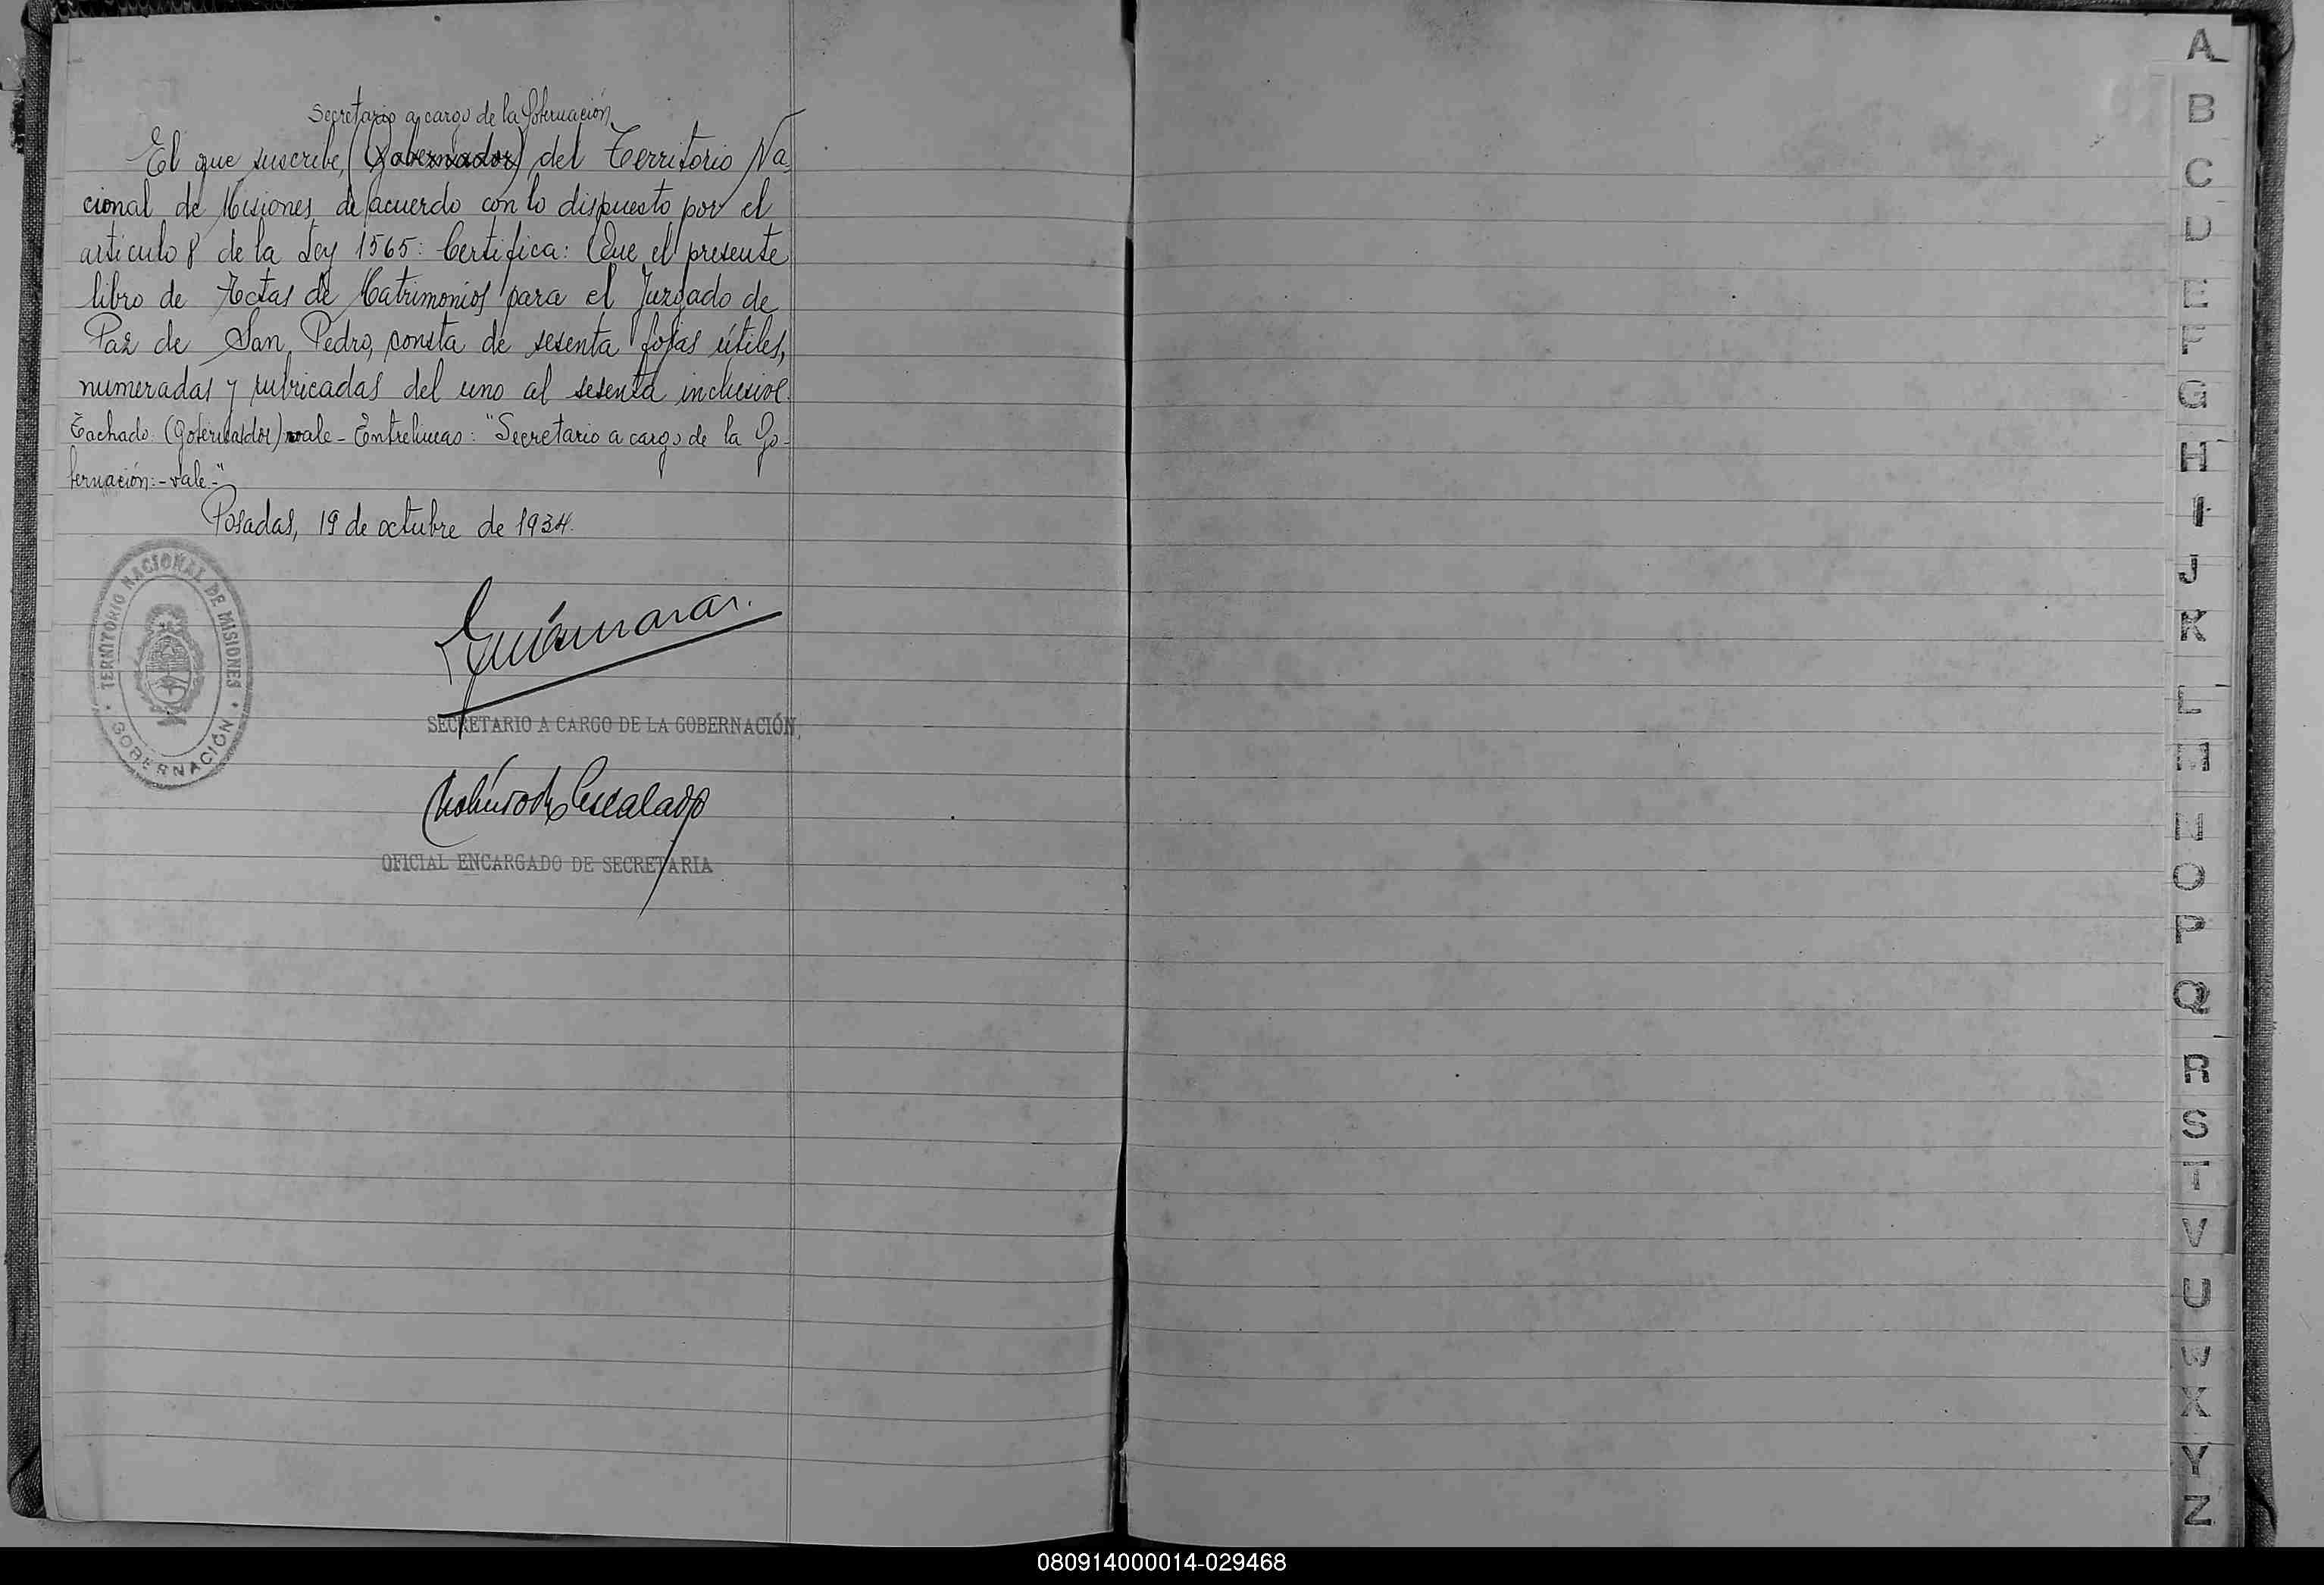 Secretario a cargo de la Gobernación
El que suscribe, (Gobernador) del Territorio Na-
cional de Misiones, de acuerdo con lo dispuesto por el
artículo 8 de la Ley 1565: Certifica: Que el presente
libro de Actas de Matrimonios para el Juzgado de
Paz de San Pedro, consta de sesenta fojas útiles,
numeradas y rubricadas del uno al sesenta inclusive.
Tachado: (Gobernador) vale - Entrelineas: "Secretario a cargo de la Go-
bernación: - vale -"
Posadas, 19 de octubre de 1934.
TERRITORIO NACIONAL DE MISIONES
GOBERNACIÓN
SECRETARIO A CARGO DE LA GOBERNACIÓN,
Escalada
OFICIAL ENCARGADO DE SECRETARIA
A
B
C
D
E
F
G
H
I
J
K
L
M
N
O
P
Q
R
S
T
V
U
W
X
Y
Z
080914000014-029468